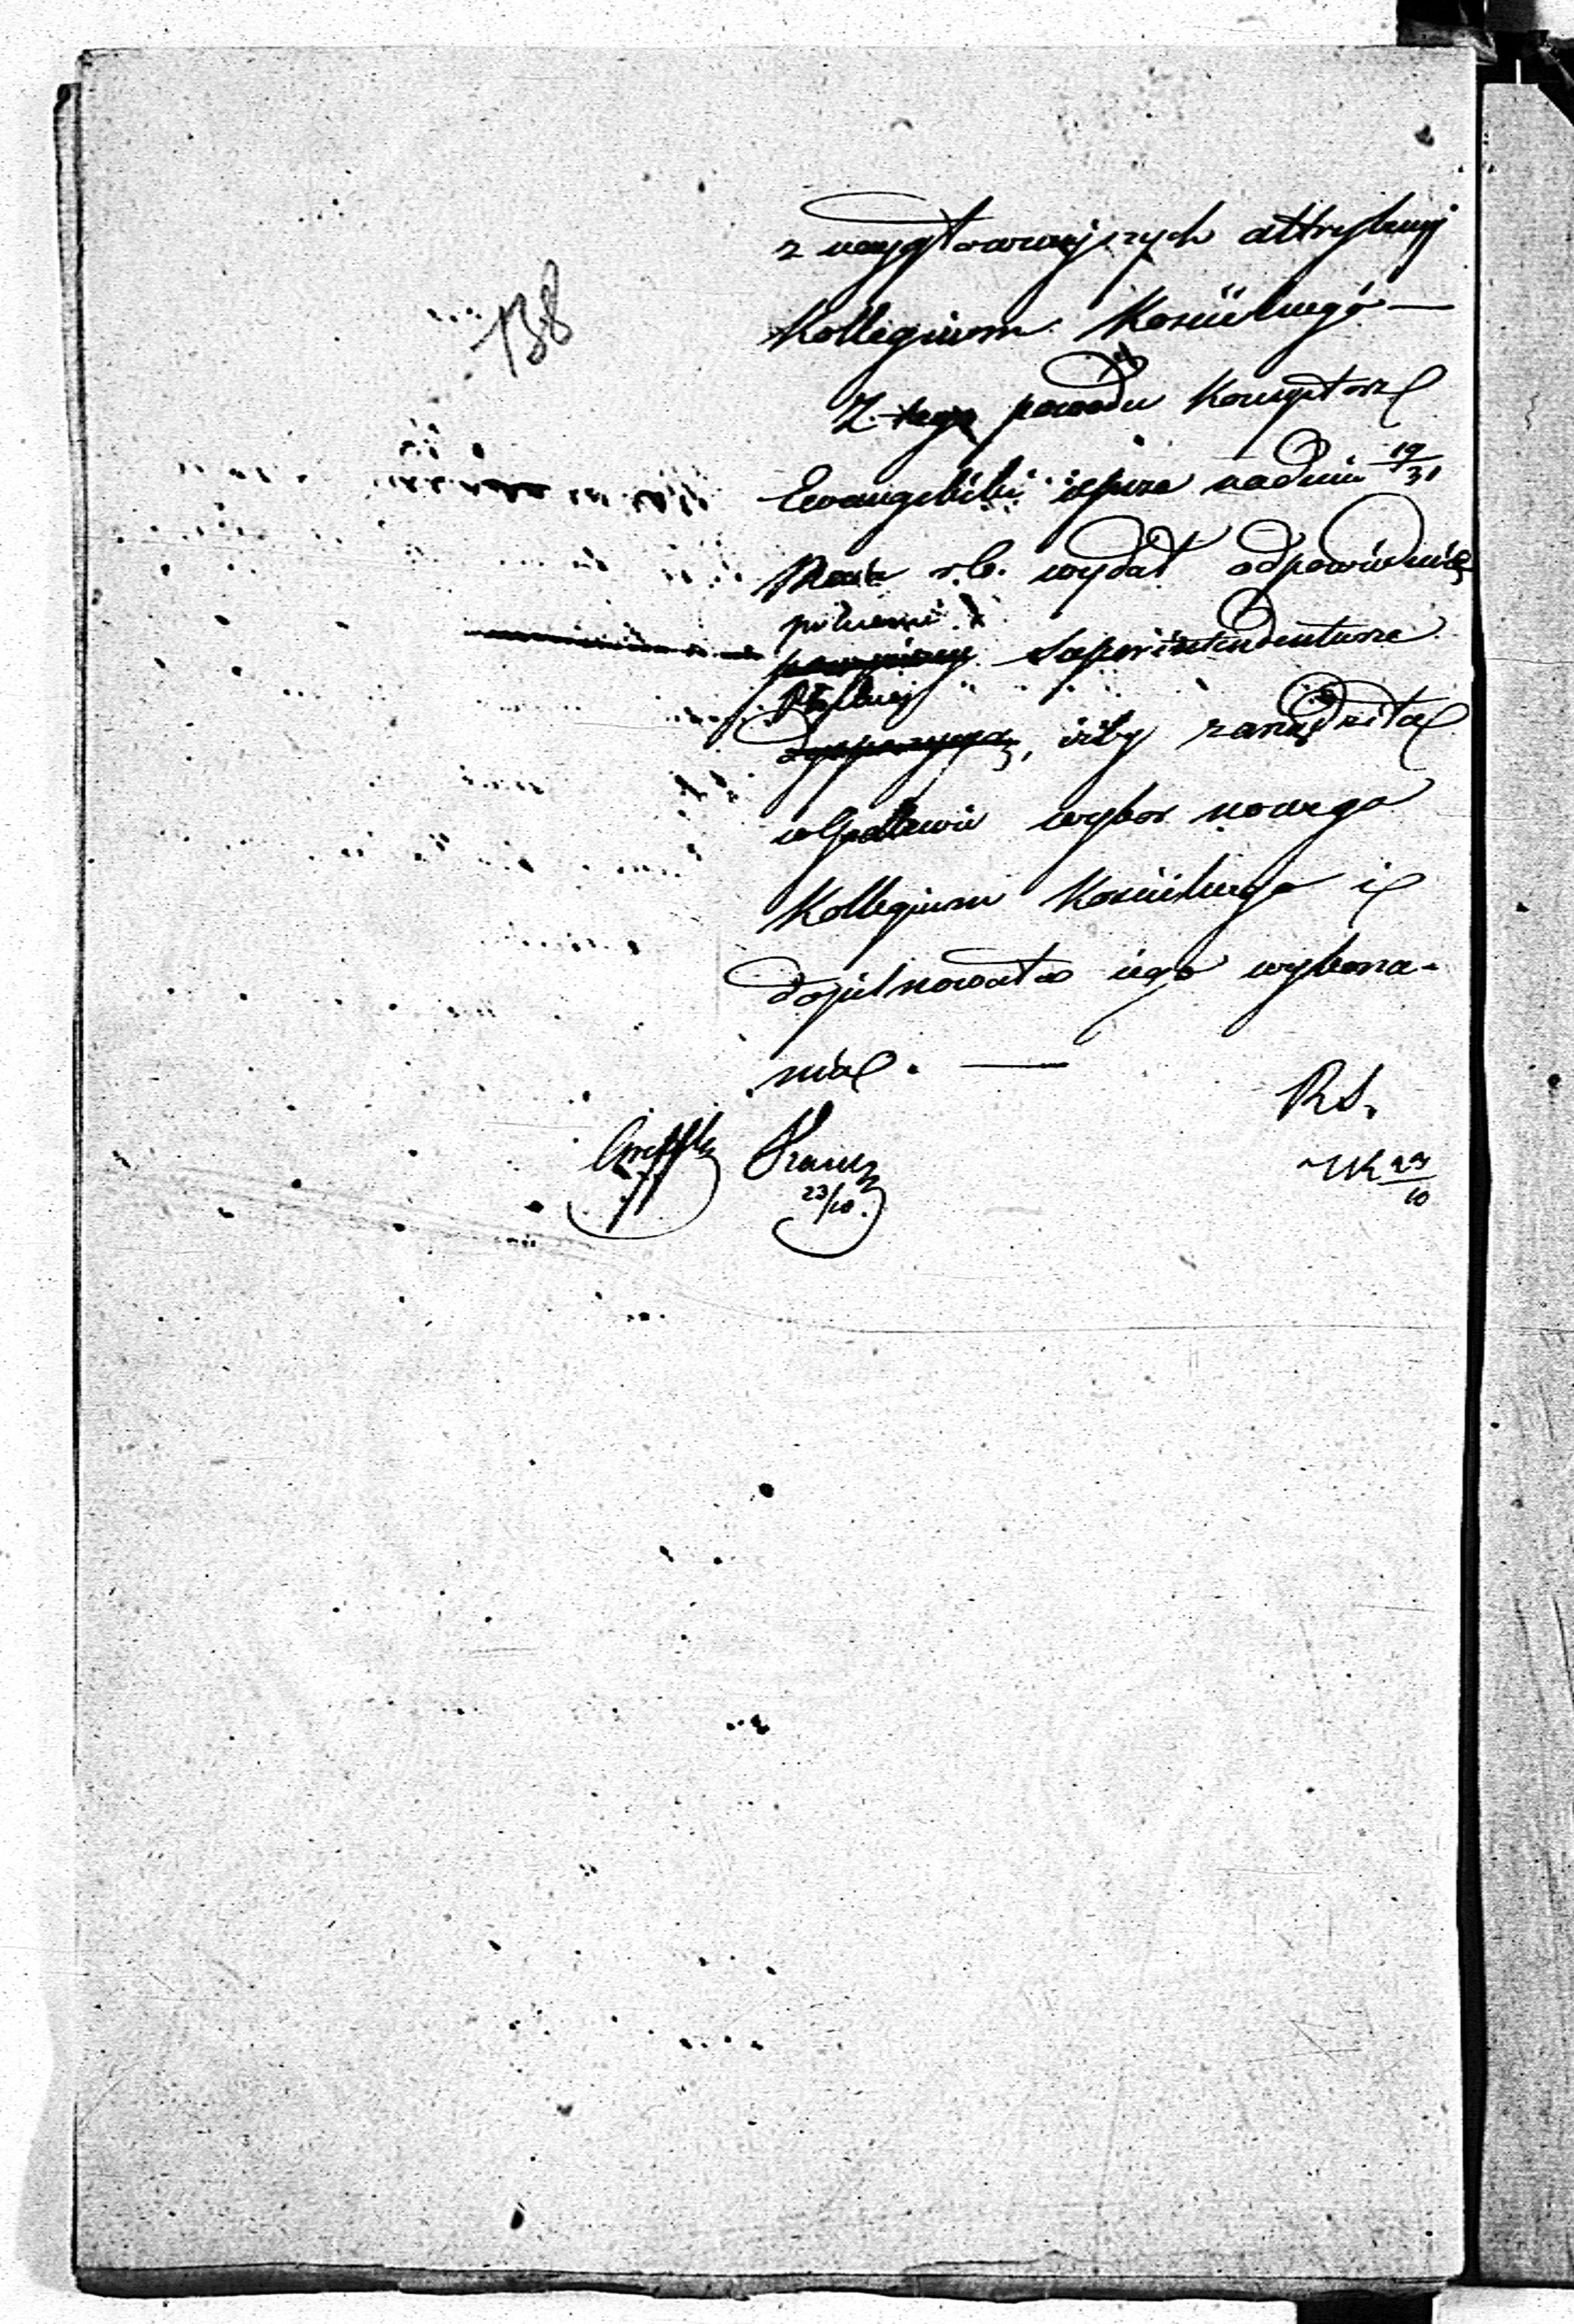 138
z najgłówniejszych attrybucyj
Kollegium Kościelnego —
Z tego powodu Konsystorz
Ewangelicki jeszcze na dniu 19/31
Maia r. b. wydał odpowiednie
polecenie
Superintendenturze
Płockiej
, iżby zarządziła
wybor nowego
Kollegium Kościelnego i
dopilnowała iego wykona-
nia. —
RS.
23/10.
10